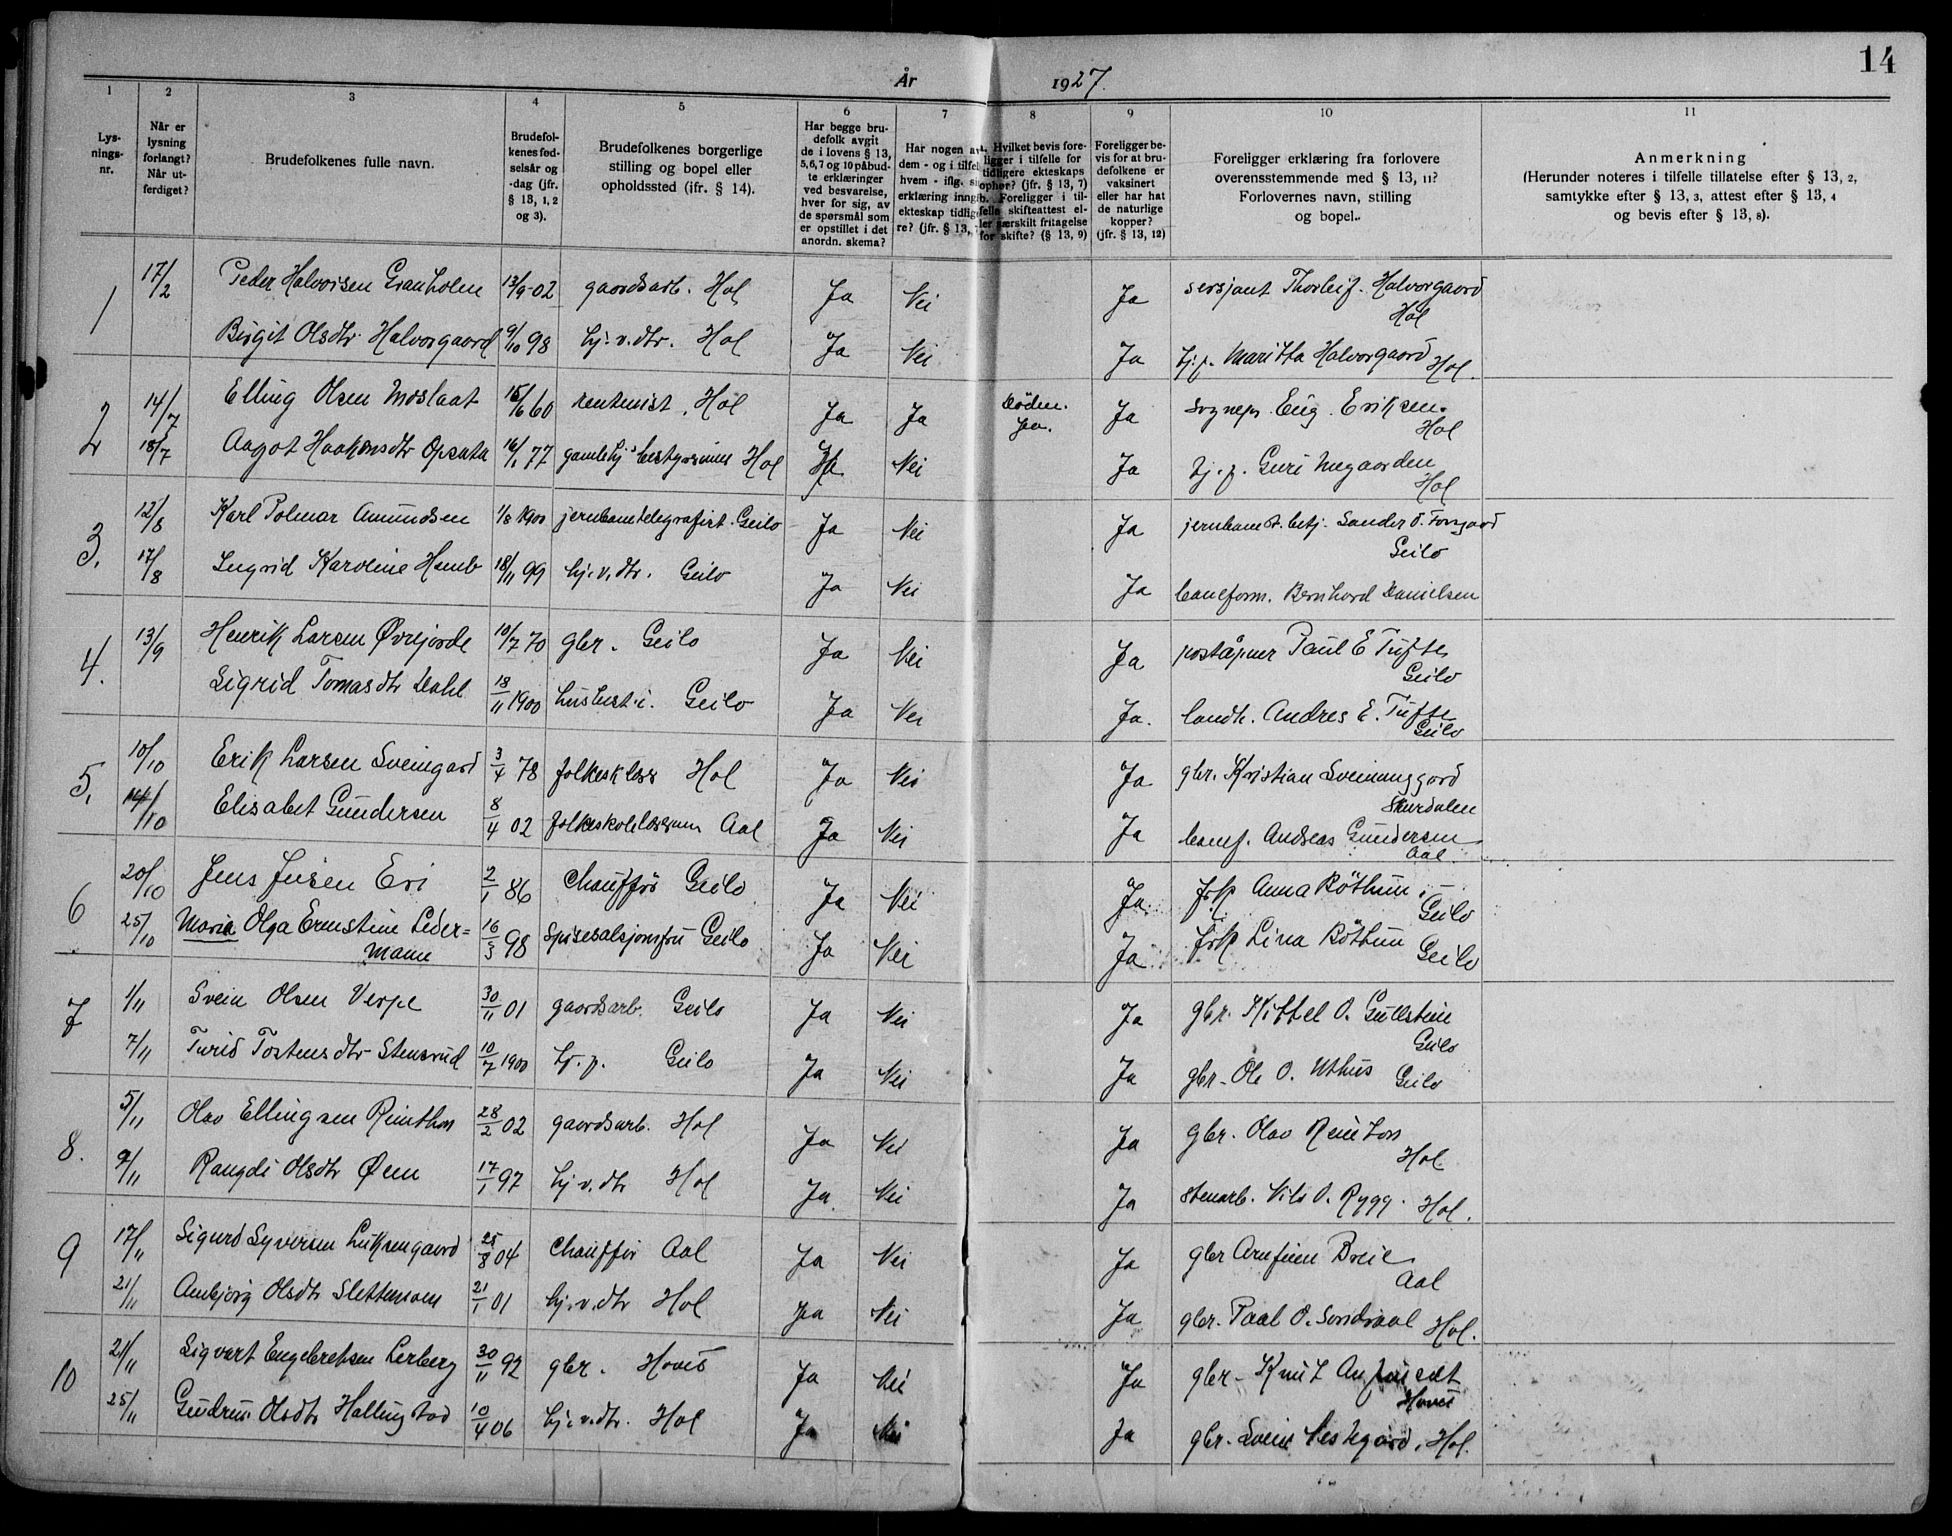 14
År 1927.
1 2 3 4 5 6 7 8 9 10 11
Lys-
nings-
nr.
Når er
lysning
forlangt?
Når ut-
ferdiget?
Brudefolkenes fulle navn.
Brudefol-
kenes fød-
selsår og
-dag (jfr.
§ 13, 1, 2
og 3).
Brudefolkenes borgerlige
stilling og bopel eller
opholdssted (ifr. § 14).
Har begge bru-
defolk avgit
de i lovens § 13,
5, 6, 7 og 10 påbud-
te erklæringer
ved besvarelse,
hver for sig, av
de spørsmål som
er opstillet i det
anordn. skema?
Har nogen av
dem - og i tilfel
hvem - iflg.
erklæring inngå
ekteskap tidlige
re? (jfr. § 13,
Hvilket bevis fore-
ligger i tilfelle for
tidligere ekteskaps
ophør? (jfr. § 13, 7)
b. Foreligger i til-
felle skifteattest el-
ler særskilt fritagelse
for skifte? (§ 13, 9)
Foreligger be-
vis for at bru-
defolkene er
vaksinert
eller har hat
de naturlige
kopper?
(jfr. § 13, 12)
Foreligger erklæring fra forlovere
overensstemmende med § 13, 11?
Forlovernes navn, stilling
og bopel.
Anmerkning
(Herunder noteres i tilfelle tillatelse efter § 13, 2,
samtykke efter § 13, 3, attest efter § 13, 4
og bevis efter § 13, 8).
1 17/2 Peder Halvorsen Granholm 13/9-02 gaardsarb. Hol Ja Nei Ja sersjant Thorleif Halvorgaard
Hol
Birgit Olsdtr. Halvorgaard 9/10 98 hj.v.dtr. Hol Ja Nei Ja hj.p. Maritta Halvorgaard Hol.
2 14/7 Elling Olsen Moslaat 15/6 60 rentenist, Hol Ja Ja Døden. Ja sognepr. Eug. Eriksen.
Ja. Hol
18/7 Aagot Haakonsdtr Opsata 16/1 77 gamlehj. bestyrerinne Hol Ja Nei Ja hj.p. Guri Negaarden
Hol
3. 12/8 Karl Polmar Amundsen 1/8 1900 jernbanetelegrafist. Geilo Ja Nei Ja jernbanest.betj. Sander O. Forsgaard
Geilo
17/8 Ingrid Karoline Homb 18/11 99 hj.v.dtr. Geilo Ja Nei Ja baneform. Bernhard Danielsen
4. 13/9 Henrik Larsen Øvrejorde 10/7 70 gbr. Geilo Ja Nei Ja poståpner Paul E Tufte
Geilo
Sigrid Tomasdtr Dahl 18/11 1900 husbest.i. Geilo Ja Nei Ja. landh. Andres E. Tufte
Geilo
5. 10/10 Erik Larsen Sveingard 3/4 78 folkesk.lær. Hol Ja Nei Ja gbr. Kristian Sveinunggard
Skurdalen
14/10 Elisabet Gundersen 8/4 02 folkeskolelærerinn Aal Ja Nei Ja banef. Andreas Gundersen
Aal
6 20/10 Jens Jensen Eri 2/1 86 Chauffør Geilo Ja Nei Ja frk Anna Røthun, -
Geilo
25/10 Maria Olga Ernstine Leder= 16/3 98 Spisesalsjomfru Geilo Ja Nei Ja frk Lina Røthun Geilo
mann
7 1/11 Svein Olsen Verpe 30/11 01 gaardsarb. Geilo Ja Nei Ja gbr. Kittel O. Gullstein
Geilo
7/11 Turid Tostensdtr Stensrud 10/7 1900 hj.p. Geilo Ja Nei Ja gbr. Ole O. Uthus Geilo
8. 5/11 Olav Ellingsen Reinthon 28/2 02 gaardsarb. Hol Ja Nei Ja gbr. Olav Reinton
Hol
9/11 Rangdi Olsdtr Øen 17/1 97 hj.v.dtr Hol Ja. Nei Ja stenarb. Nils O. Rygg. Hol.
9 17/11 Sigurd Syversen Luksengaard 25/8 04 Chauffør Aal Ja Nei Ja gbr Arnfinn Breie
Aal
21/11 Ambjørg Olsdtr Slettemoen 21/1 01 hj.v.dtr Hol Ja Nei Ja gbr. Paal O. Sondraal Hol.
10 21/11 Sigvart Engebretsen Lerberg 30/11 92 gbr. Hovet Ja Nei Ja gbr. Knut Anfinset
Hovet
25/11 Gudrun Olsdtr Hallingstad 10/4 06 hj.v.dtr. Hol Ja Nei Ja gbr. Svein Neshgård, Hol.